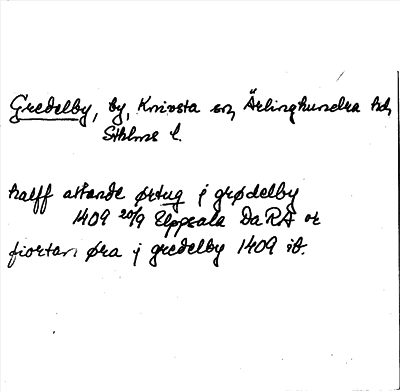 Gredelby, by, Knivsta sn, Ärlinghundra hd,
Sthlms l.
halff attande ørtug j grødelby
1409 20/9 Uppsala DaRA or
fiortan øra j gredelby 1409 ib.